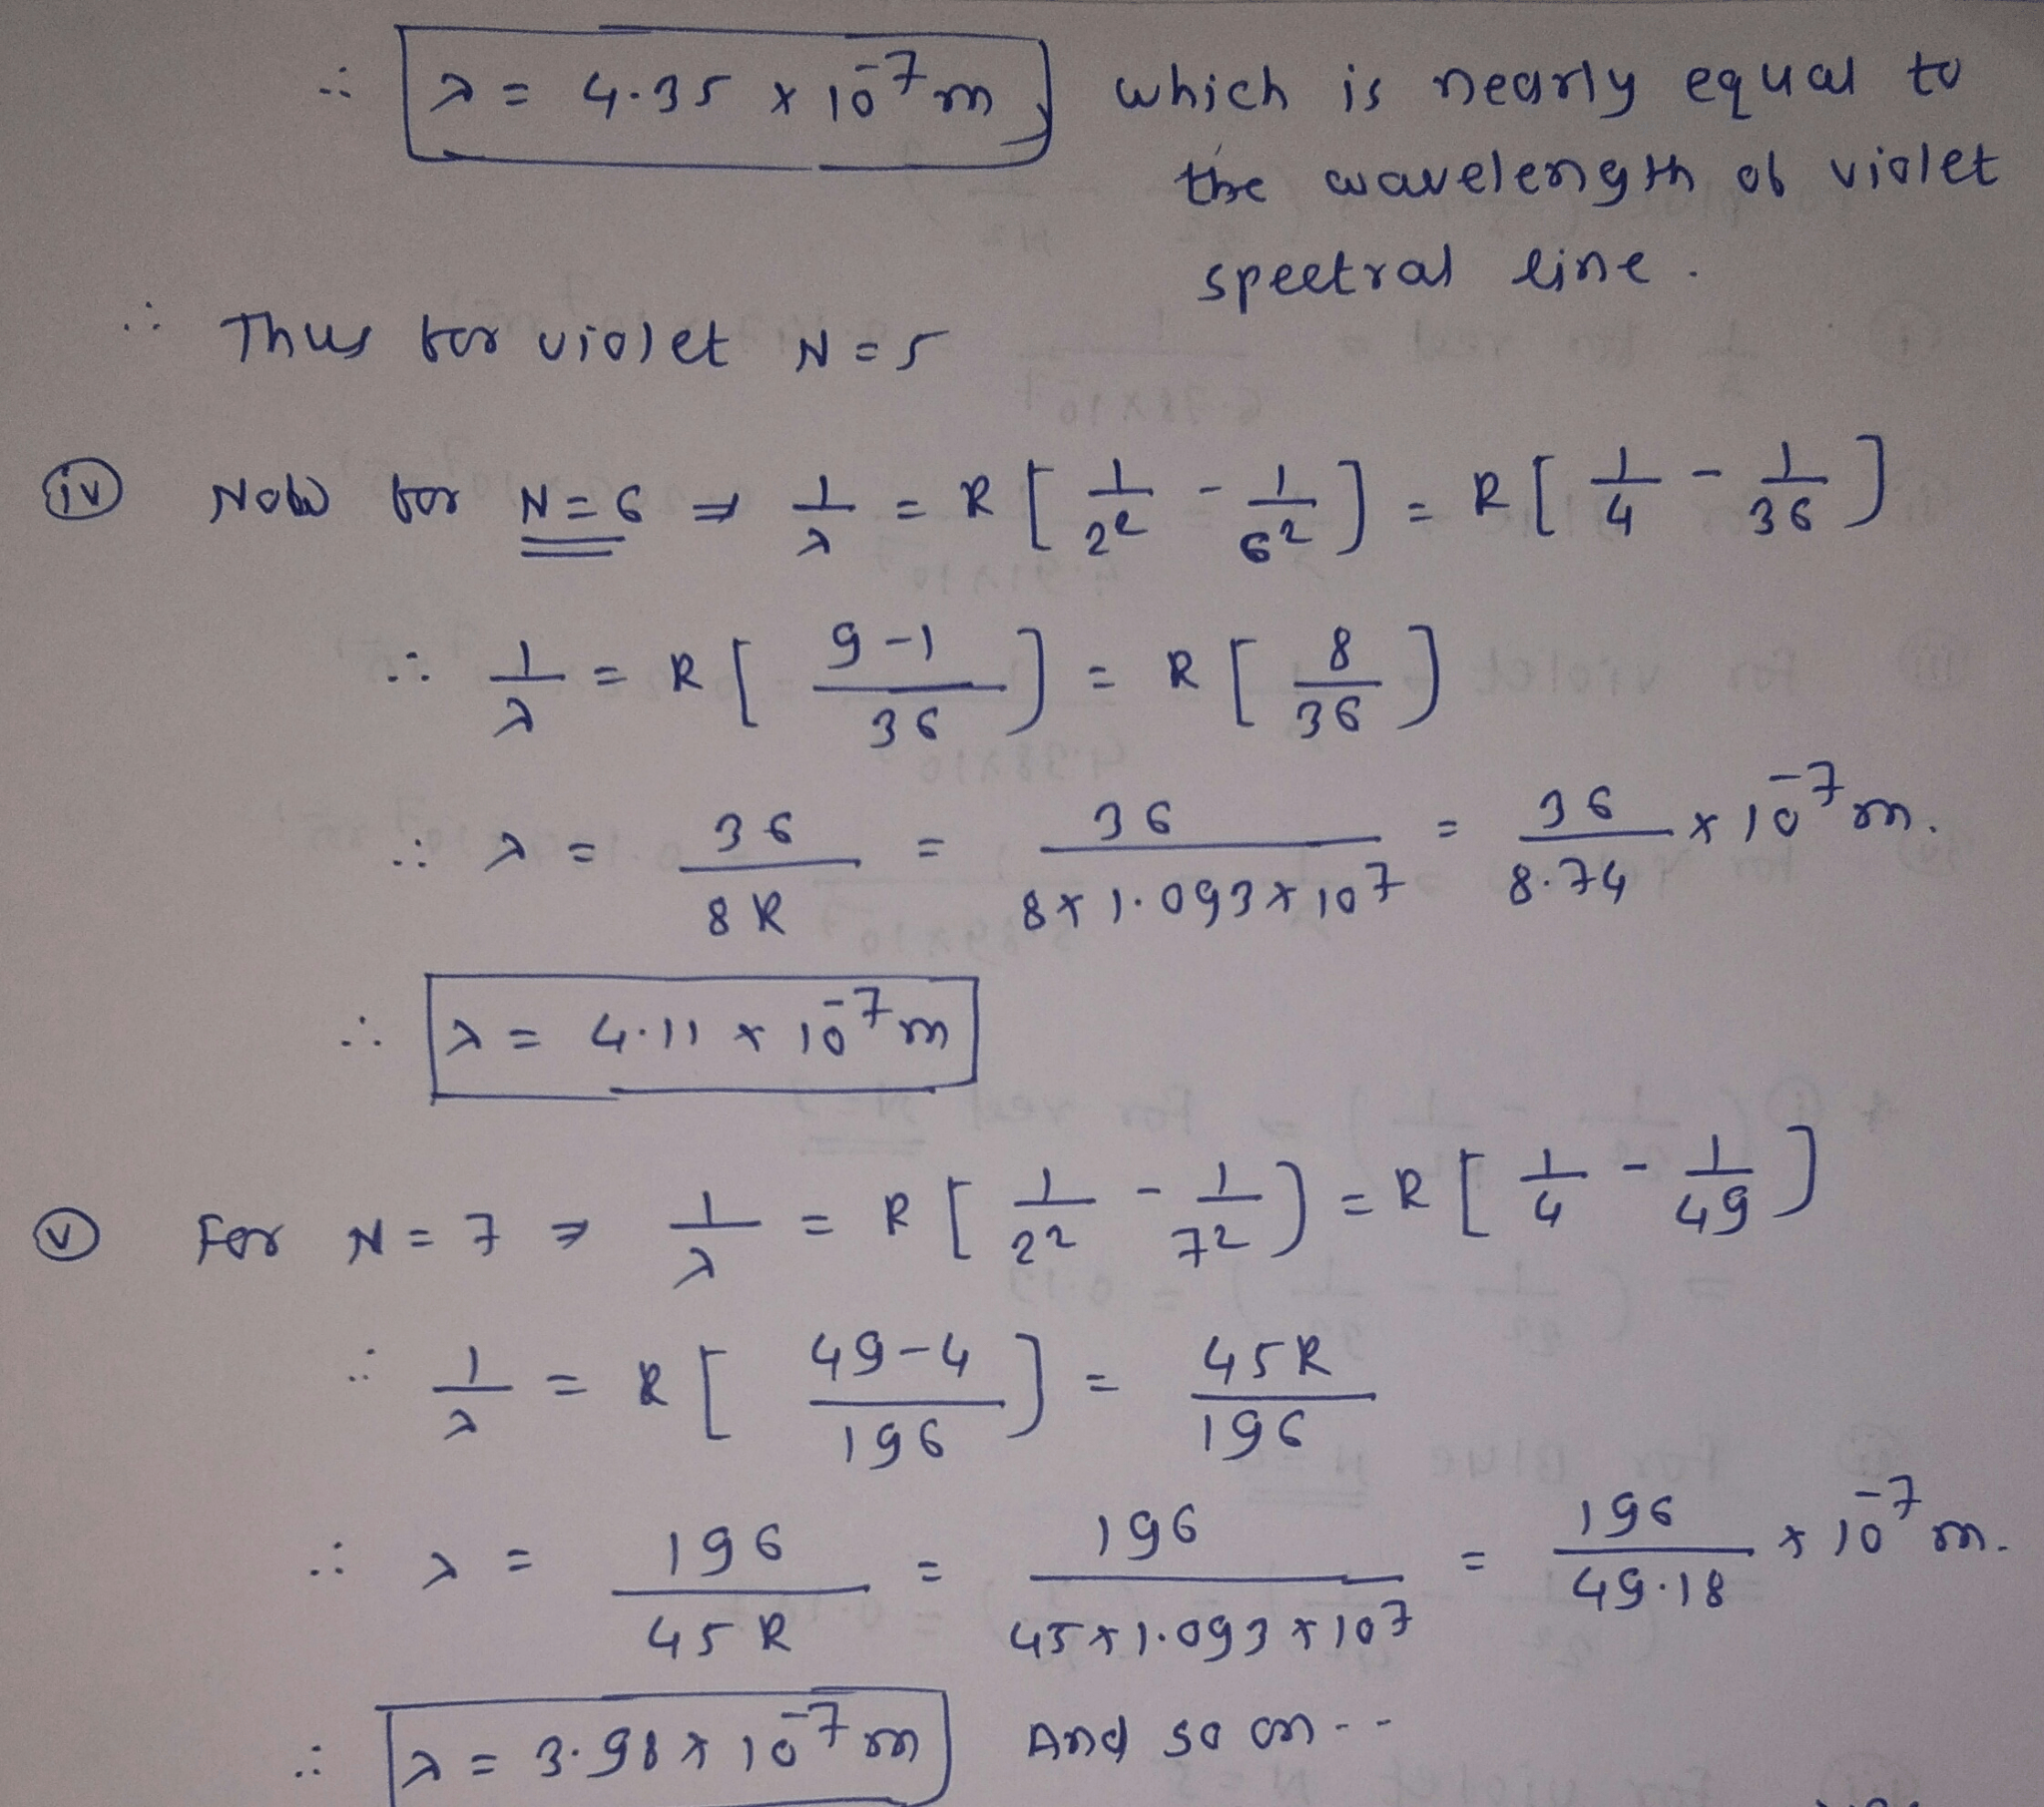 ∴ λ = 4.35 × 10⁻⁷ m which is nearly equal to
the wavelength of violet
spectral line.
∴ Thus for violet N = 5
(iv) Now for N = 6 ⇒ 1/λ = R [ 1/2² - 1/6² ] = R [ 1/4 - 1/36 ]
∴ 1/λ = R [ (9-1)/36 ] = R [ 8/36 ]
∴ λ = 36/8R = 36/(8 × 1.093 × 10⁷) = 36/8.74 × 10⁻⁷ m.
∴ λ = 4.11 × 10⁻⁷ m
(v) For N = 7 ⇒ 1/λ = R [ 1/2² - 1/7² ] = R [ 1/4 - 1/49 ]
∴ 1/λ = R [ (49-4)/196 ] = 45R/196
∴ λ = 196/45R = 196/(45 × 1.093 × 10⁷) = 196/49.18 × 10⁻⁷ m.
∴ λ = 3.98 × 10⁻⁷ m And so on --